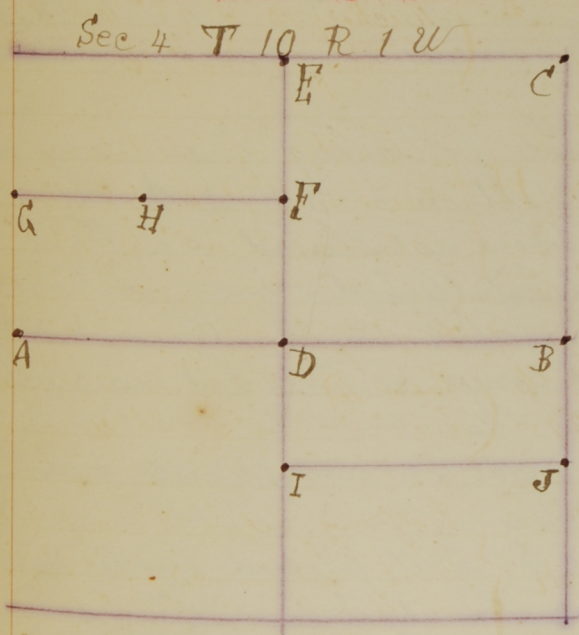 Sec 4 T 10 R 1 W
E C
G H F
A D B
I J